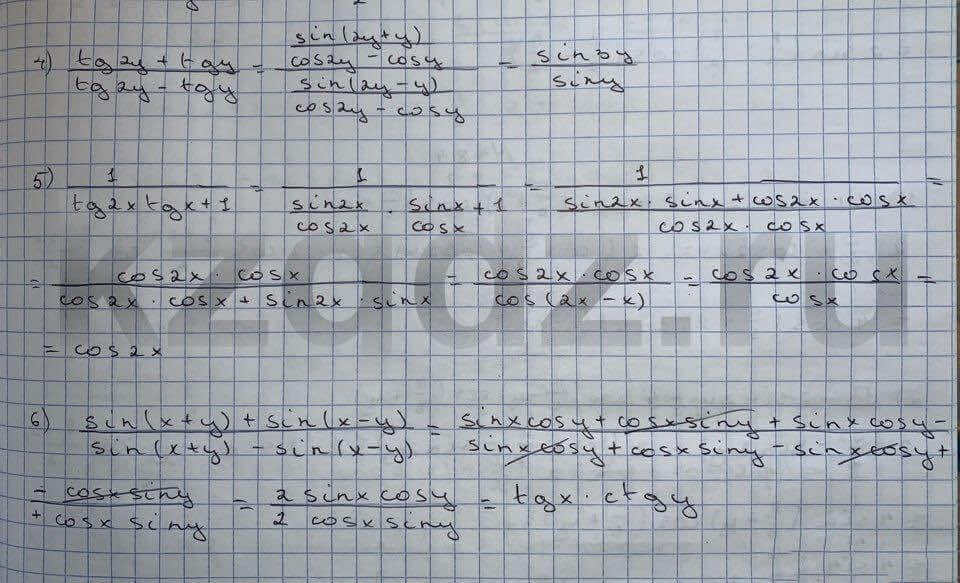 4) (tg2y + tgy)/(tg2y - tgy) = (sin(2y+y)/(cos2y - cosy))/(sin(2y-y)/(cos2y - cosy)) = sin3y/siny
5) 1/(tg2x tgx+1) = 1/(sin2x/cos2x · sinx/cosx + 1) = 1/((sin2x · sinx + cos2x · cosx)/(cos2x · cosx)) =
= (cos2x · cosx)/(cos2x · cosx + sin2x · sinx) = (cos2x · cosx)/(cos(2x - x)) = (cos2x · cosx)/cosx =
= cos2x
6) (sin(x+y) + sin(x-y))/(sin(x+y) - sin(x-y)) = (sinx cosy + cosx siny + sinx cosy -)/(sinx cosy + cosx siny - sinx cosy +)
(- cosx siny)/(+ cosx siny) = (2 sinx cosy)/(2 cosx siny) = tgx · ctgy
kzgdz.ru